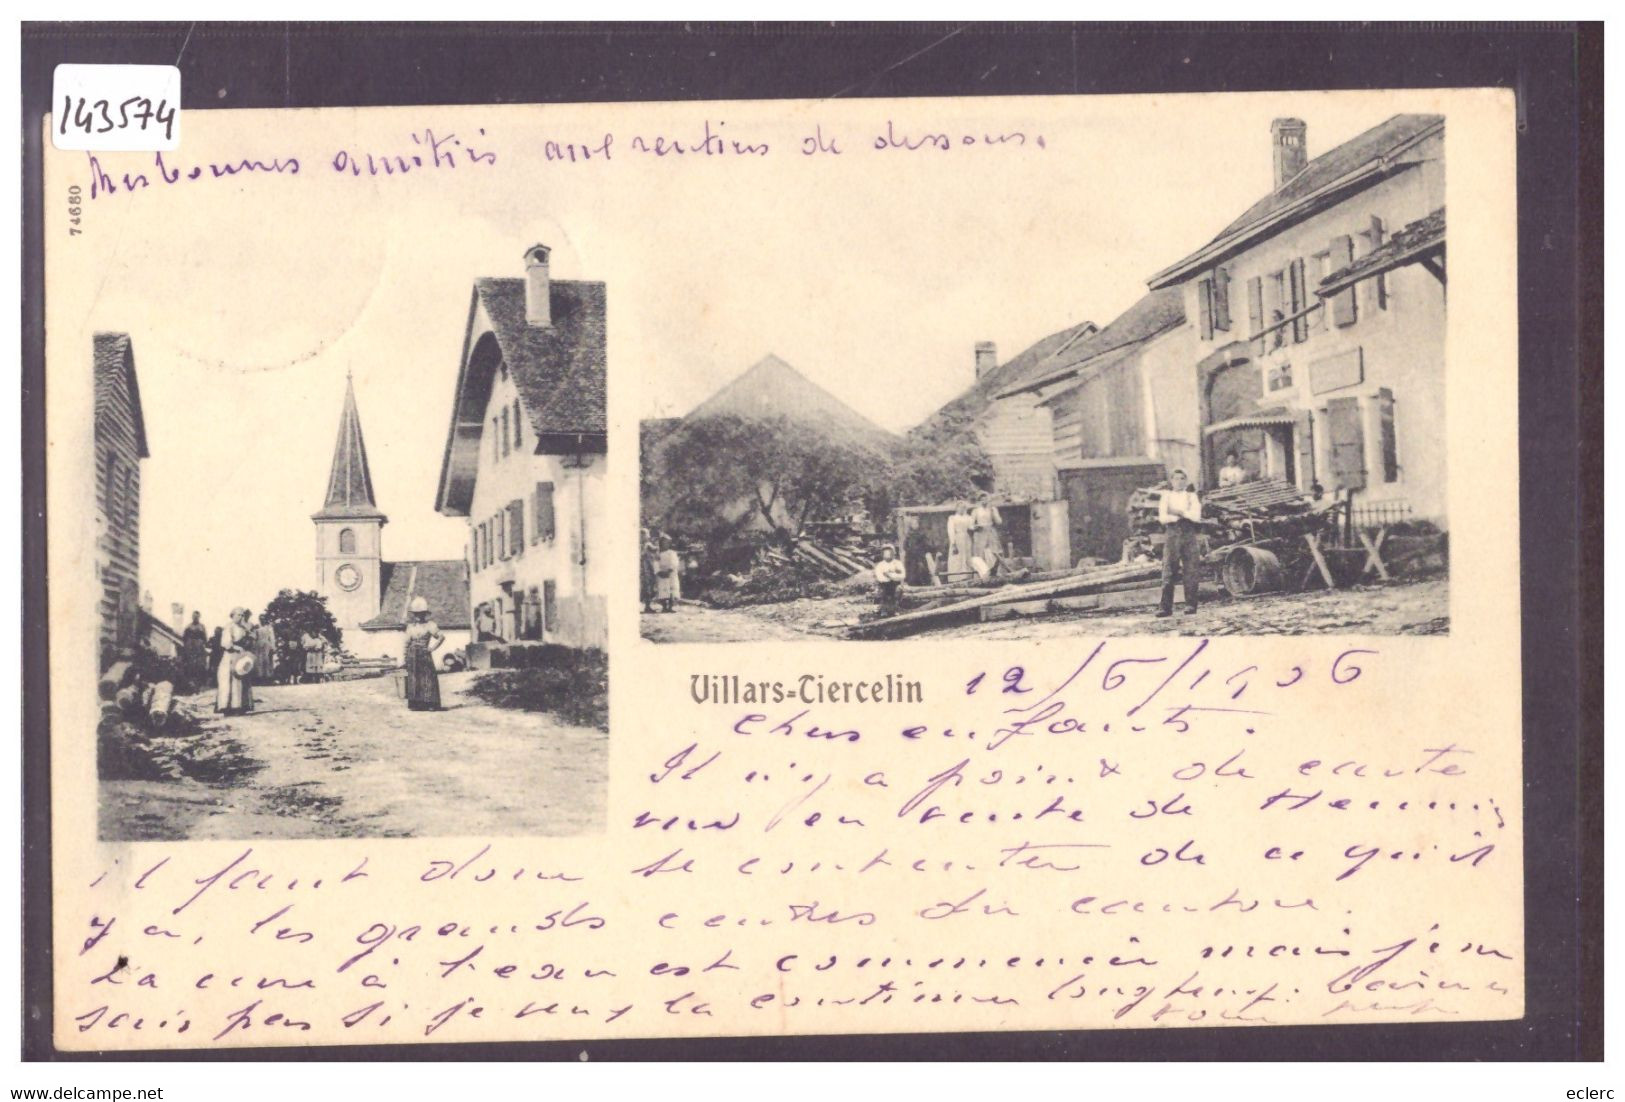 143574
Mes bonnes amitiés aux rentiers de dessous.
74680
Villars=Tiercelin 12/6/1906
Chers enfants.
Il n'y a point de carte
vue en vente de
il faut donc se contenter de ce qu'il
y a, les grands centres du canton.
La cure à l'eau est commencée mais je ne
sais pas si je veux la continuer longtemps. Baisers
www.delcampe.net
eclerc